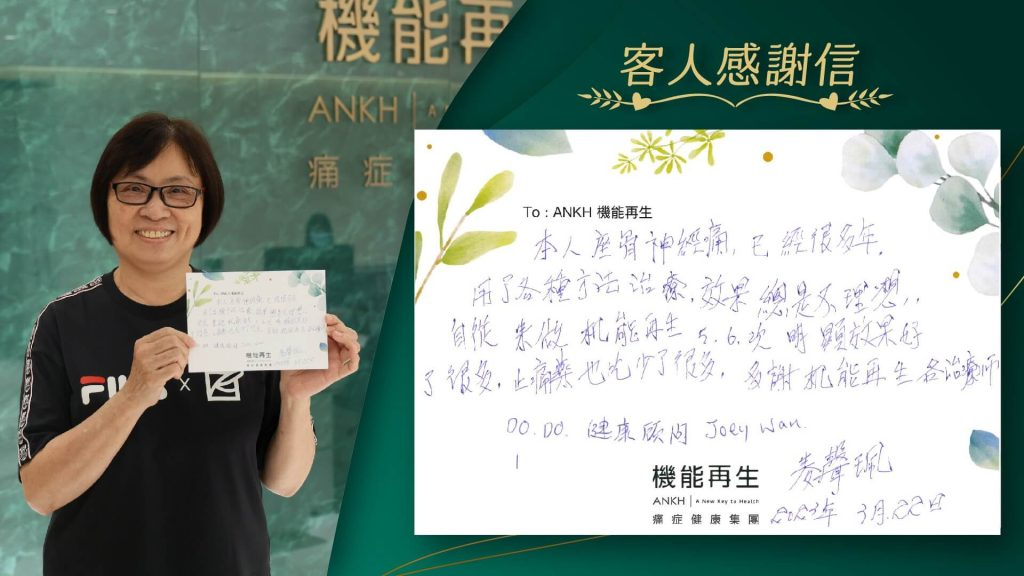 機能再
ANKH | A
痛症
FILA
x
客人感謝信
To : ANKH 機能再生
本人座骨神經痛，已經很多年，
用了各種方法治療，效果總是不理想，,
自從來做机能再生 5.6.次明顯效果好
了很多，止痛藥也吃少了很多，多謝机能再生各治療師
DO.DO. 健康顧問 Joey Wan.
機能再生
ANKH | A New Key to Health
痛症健康集團
2023年 3月.22日